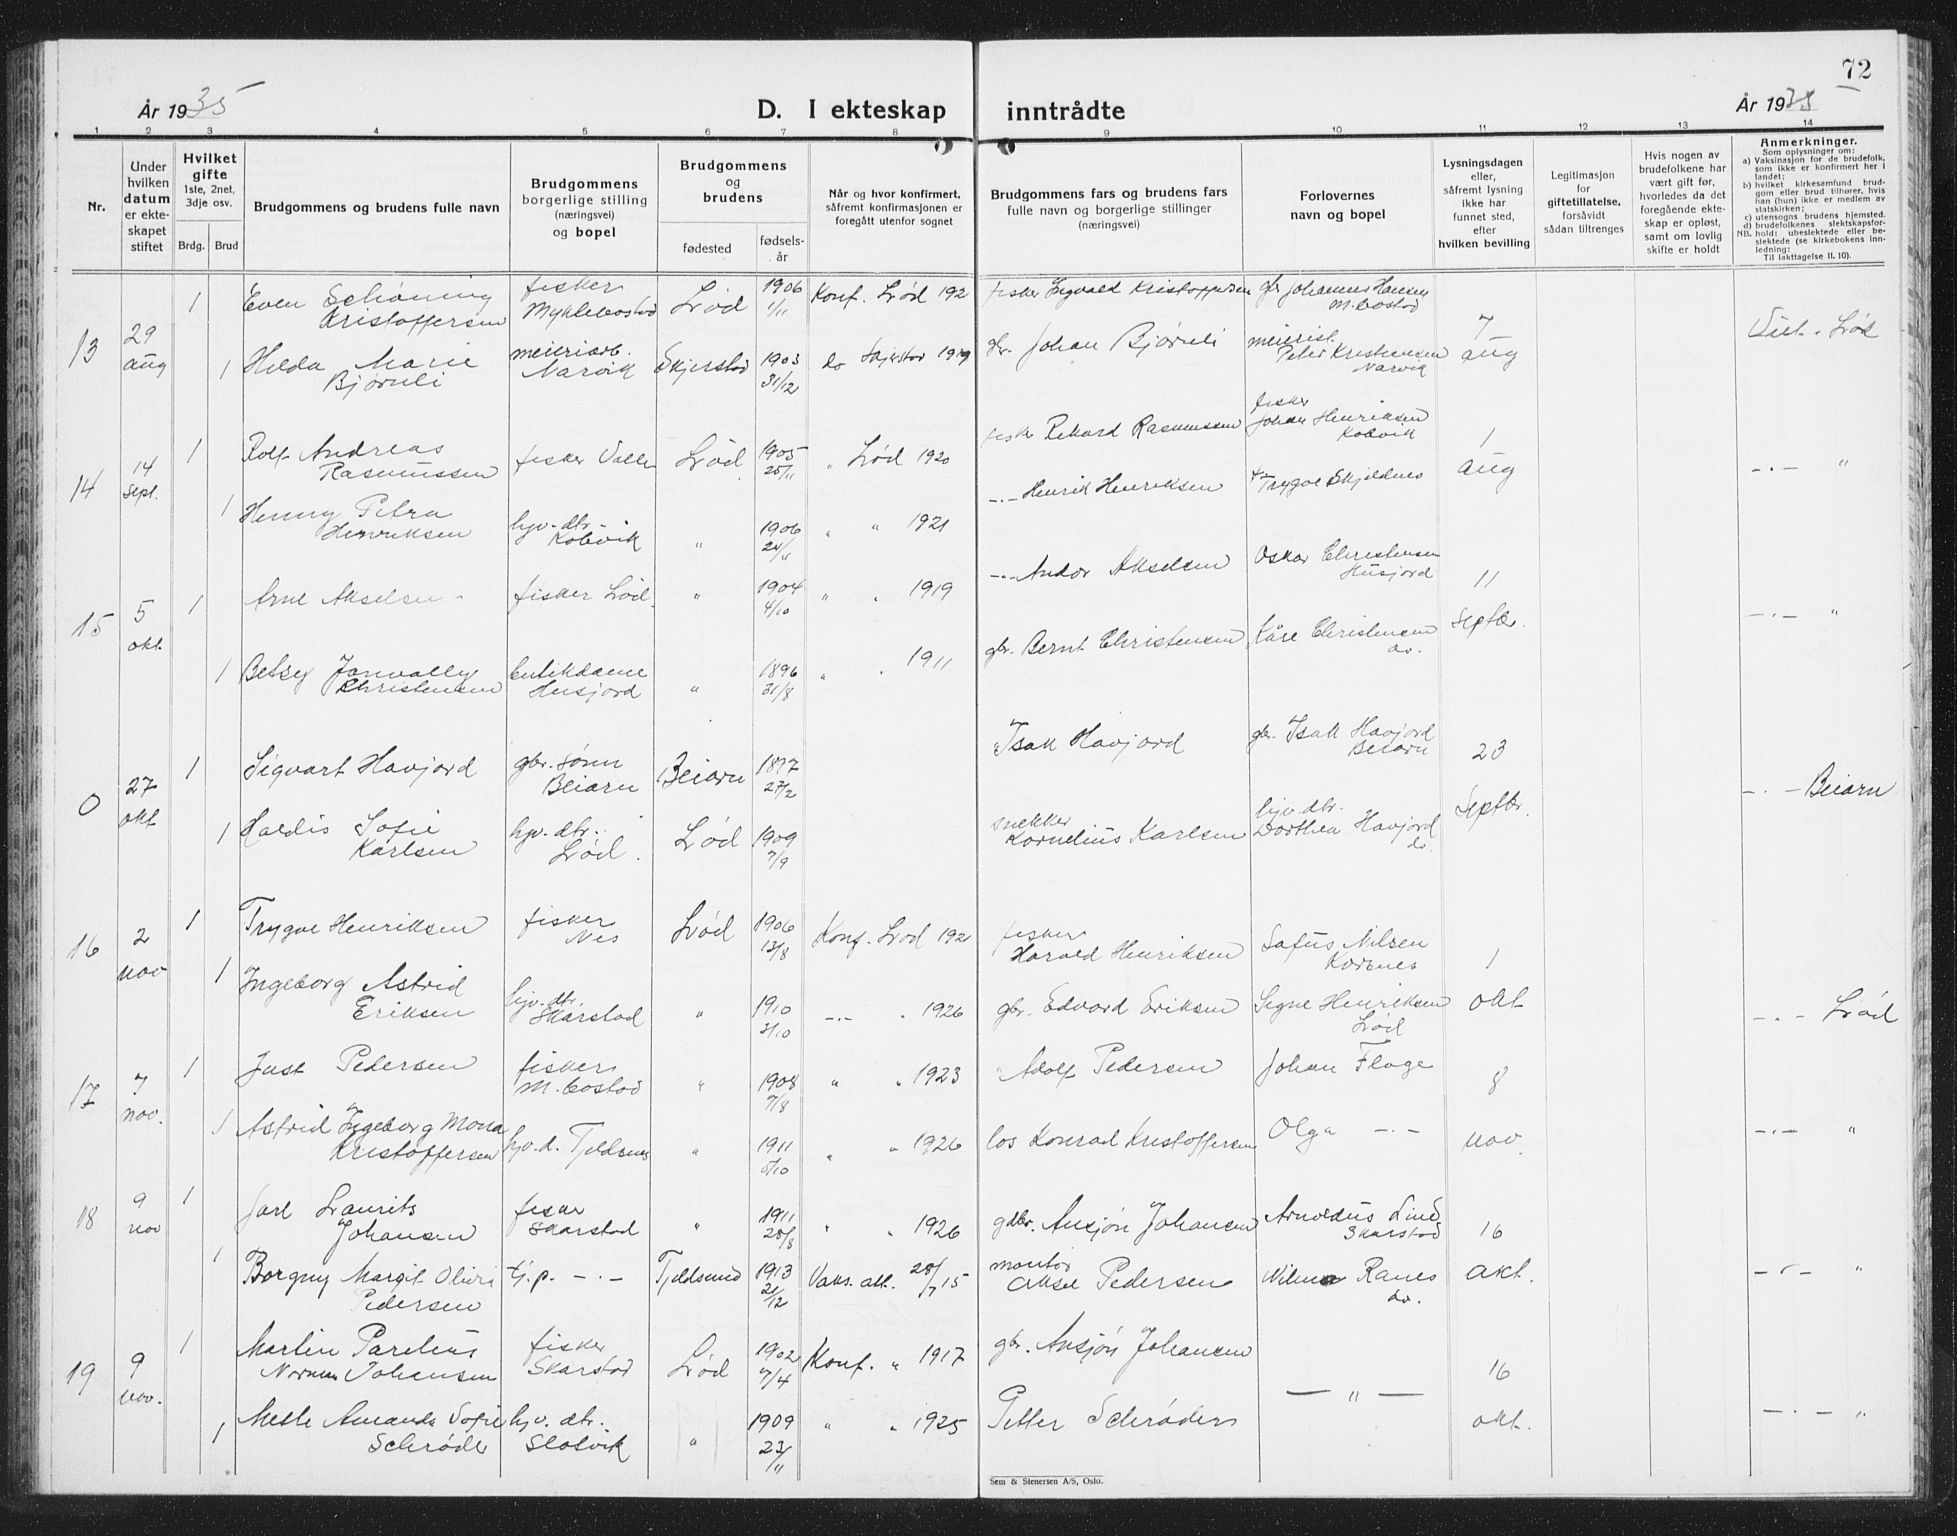 72
År 1935
D. I ekteskap inntrådte
År 1935
1 2 3 4 5 6 7 8 9 10 11 12 13 14
Nr.
Under hvilken datum er ekteskapet stiftet
Hvilket gifte
1ste, 2net, 3dje osv.
Brdg. Brud
Brudgommens og brudens fulle navn
Brudgommens borgerlige stilling (næringsvei) og bopel
Brudgommens og brudens
fødested
fødselsår
Når og hvor konfirmert, såfremt konfirmasjonen er foregått utenfor sognet
Brudgommens fars og brudens fars fulle navn og borgerlige stillinger (næringsvei)
Forlovernes navn og bopel
Lysningsdagen eller, såfremt lysning ikke har funnet sted, efter hvilken bevilling
Legitimasjon for giftetillatelse, forsåvidt sådan tiltrenges
Hvis nogen av brudefolkene har vært gift før, hvorledes da det foregående ekteskap er opløst, samt om lovlig skifte er holdt
Anmerkninger.
Som oplysninger om:
a) Vaksinasjon for de brudefolk, som ikke er konfirmert her i landet;
b) hvilket kirkesamfund brudgom eller brud tilhører, hvis han (hun) ikke er medlem av statskirken;
c) utensogns brudens hjemsted.
d) brudefolkenes slektskapsforhold: ubeslektede eller beslektede (se kirkebokens innledning:
NB.
Til iakttagelse II. 10).
13 29 aug 1 Even Schøning Kristoffersen fisker Myklebostad Lød 1906 1/11 Konf. Lød 192 fisker Sigvald Kristoffersen gbr. Johannes Hansen M.bostad 7 aug
1 Hilda Marie Bjørnli meieriarb. Narvik Skjerstad 1903 31/12 do Skjerstad 1919 gbr. Johan Bjørnli meierist. Peter Kristensen Narvik
14 14 Sept. 1 Rolf Andreas Rasmussen fisker Valle Lød 1905 25/11 " Lød 1920 fisker Rikard Rasmussen fisker Johan Henriksen Kobvik 1 aug -.- "
1 Henny Petra Henriksen hjv. dtr. Kobvik " 1906 24/11 " " 1921 -.- Henrik Henriksen Trygve Skjeldnes
15 5 okt 1 Arne Akselsen fisker Lød " 1904 4/10 " " 1919 -.- Andor Akselsen Oskar Christensen Husjord 11 Septbr. -.- "
1 Betsey Christensen butikdame Husjord " 1896 31/8 " " 1911 gbr. Bernt Christensen Kåre Christensen do.
0 27 okt 1 Sigvart Havjord gbr. sønn Beiarn Beiarn 1897 27/2 " Isak Havjord gbr. Isak Havjord Beiarn 23 Septbr. -.- Beiarn
1 Haldis Sofie Karlsen hjv. dtr. Lød Lød 1909 7/9 snekker Kornelius Karlsen hjv. dtr. Dorthea Havjord do.
16 2 nov 1 Trygve Henriksen fisker Nes Lød 1906 13/8 Konf. Lød 192 fisker Harald Henriksen Sofus Nilsen Korsnes 1 okt
1 Ingeborg Astrid Eriksen hjv. dtr. Skarstad " 1910 3/10 -.- " 1926 gbr. Edvard Eriksen Signe Henriksen Lød -.- Lød
17 7 nov. 1 Just Pedersen fisker M.bostad " 1908 7/8 " " 1923 " Adolf Pedersen Johan Floge 8 nov. -.- "
1 Astrid Ingeborg Mona Kristoffersen hjv. d. Tjeldnes " 1911 5/10 " " 1926 los Konrad Kristoffersen Olga -.-
18 9 nov 1 Jarl Laurits Johansen fisker Skarstad " 1911 28/8 " " 1926 gbr. Ansjøn Johansen Arnoldus Lind Skarstad 16 okt. -.- "
1 Borgny Margit Olivia Pedersen tj.p. -.- Tjeldsund 1913 21/12 Vaks. att. 28/7 15 montør Aksel Pedersen Wilma Ranes do.
19 9 nov. 1 Martin Parelius Norman Johansen fisker Skarstad Lød 1902 7/4 Konf. " 1917 gbr. Ansjøn Johansen — " — 16 okt. -.- "
1 Mette Amanda Sofie Schrøder hjv. dtr. Slotvik " 1909 23/11 " " 1925 Petter Schrøder
Sem & Stenersen A/S, Oslo.